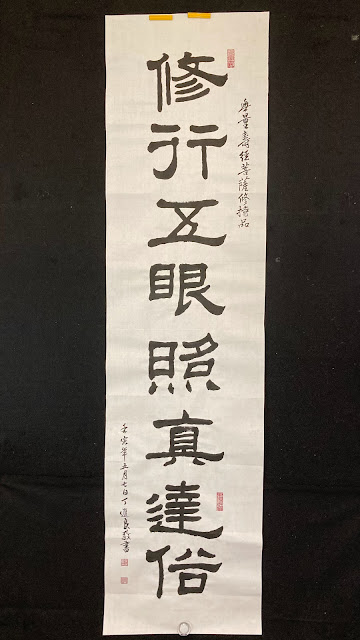 無量壽經菩薩修持品
修行五眼照真達俗
壬寅年五月七日丁良敬書